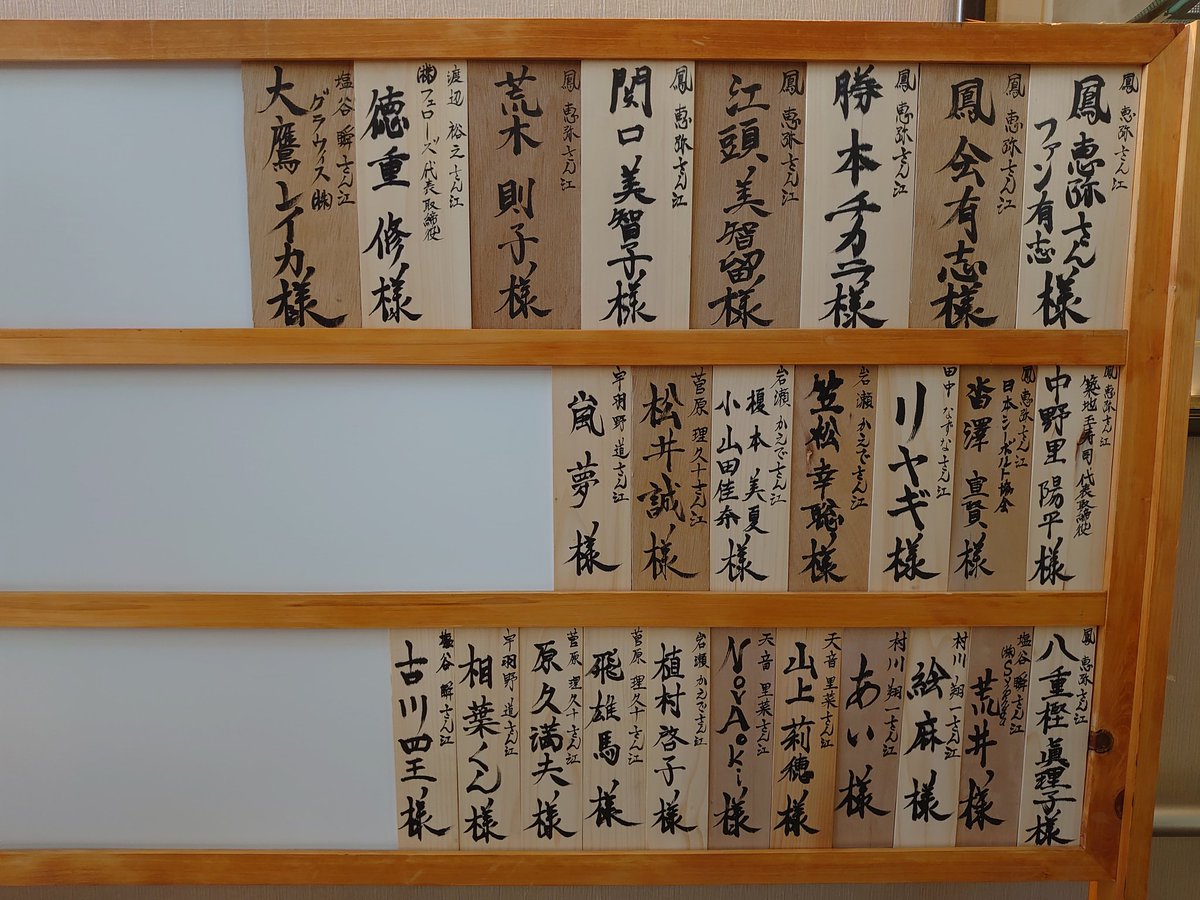 鳳 恵弥さん江
鳳 恵弥さん
ファン有志
様
鳳 恵弥さん江
鳳会有志様
鳳 恵弥さん江
勝本チカラ様
鳳 恵弥さん江
江頭美智留様
鳳 恵弥さん江
関口美智子様
鳳 恵弥さん江
荒木則子様
渡辺 裕之さん江
㈱フェローズ代表取締役
徳重 修様
塩谷 瞬さん江
グラウィス㈱
大鷹レイカ様
鳳 恵弥さん江
築地玉寿司 代表取締役
中野里 陽平様
鳳 恵弥さん江
日本シーボルト協会
沓澤 宣賢様
田中 なずなさん江
リヤギ様
岩瀬 かえでさん江
笠松幸聡様
岩瀬 かえでさん江
榎本 美夏
小山田佳奈
様
菅原 理久十さん江
松井誠様
宇羽野 道さん江
嵐 夢様
鳳 恵弥さん江
八重樫眞理子様
塩谷 瞬さん江
荒井様
村川 翔一さん江
絵麻様
村川 翔一さん江
あい様
天音 里菜さん江
山上莉穂様
天音 里菜さん江
NovAoki様
岩瀬 かえでさん江
植村啓子様
菅原 理久十さん江
飛雄馬様
菅原 理久十さん江
原久満夫様
宇羽野 道さん江
相葉くん様
塩谷 瞬さん江
古川四王様